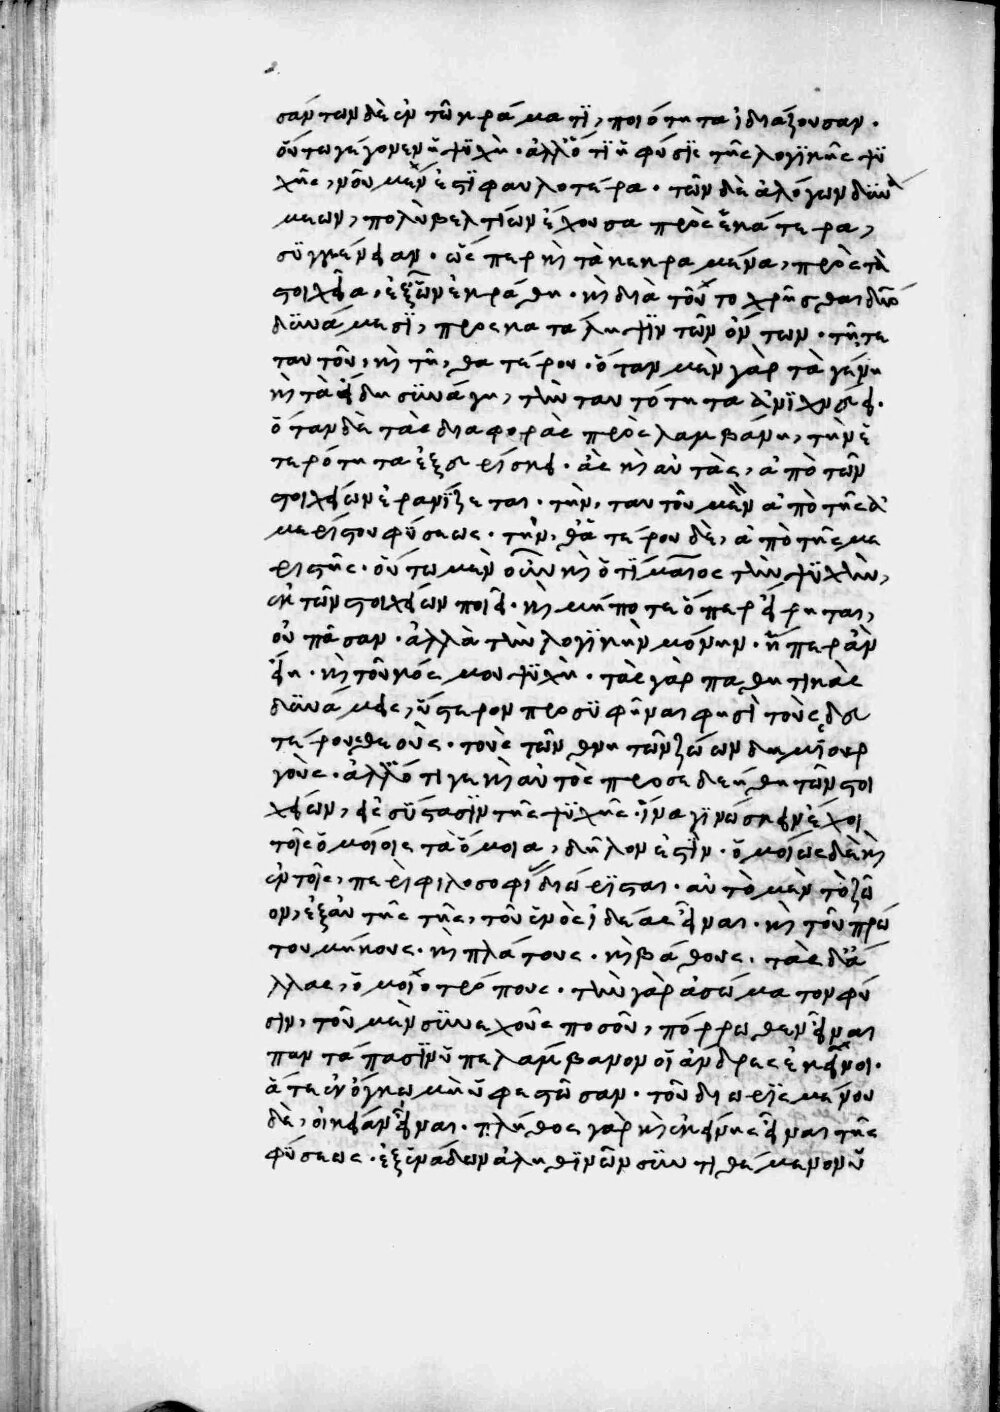 σάντων δὲ ἐν τῶ κράματϊ, ποιότητα ἰδιάζουσαν·
οὕτω γέγονεν ἡ ψϋχὴ· ἀλλ' ὅτϊ ἡ φύσϊς τῆς λογϊκῆς ψϋ
χῆς, νοῦ μέν ἐστϊ φαυλοτέρα· τῶν δὲ ἀλόγων δϋνά
μεων, πολὺ βελτΐων ἔχουσα πρὸς ἑκάτερα,
σϋγγένειαν· ὥς περ καὶ τὰ κεκραμένα, πρὸς τὰ
στοιχεῖα, ἐξ ὧν ἐκράθη· καὶ διὰ τοῦτο χρῆσθαι δυσὶ
δϋνάμεσϊ, προς κατάληψϊν τῶν ὄντων· τῆ τε
ταυτοῦ, καὶ τῆ, θατέρου· ὅταν μὲν γὰρ τὰ γένη
καὶ τὰ εἴδη σϋνάγη, τὴν ταυτότητα ἀνϊχνεύει·
ὅταν δὲ τὰς διαφορὰς προςλαμβάνη, τὴν ἑ
τερότητα ἐξευρίσκει· ἃς καὶ αὐτὰς, ἀπὸ τῶν
στοιχείων ἐρανΐζεται· τὴν, ταυτοῦ μὲν ἀπὸ τῆς ἀ
μερίστου φύσεως· τὴν, θατέρου δὲ, ἀπὸ τῆς με
ριστῆς· οὕτω μὲν οὖν καὶ ὁ τΐμαιος τὴν ψϋχὴν,
ἐκ τῶν στοιχείων ποιεῖ· καὶ μήποτε ὅπερ εἴρηται,
οὐ πᾶσαν· ἀλλὰ τὴν λογϊκὴν μόνην· ἥπερ ἂν
εἴη· καὶ τοῦ κόσμου ψϋχὴ· τὰς γὰρ παθητϊκὰς
δϋνάμεις, ὕστερον προσϋφῆναι φησὶ τοὺς δευ
τέρους θεοὺς· τοὺς τῶν θνητῶν ζώων δημϊουρ
γοὺς· ἀλλ' ὅτϊ γε καὶ αὐτὸς προσεδεήθη τῶν στοι
χείων, εἰς σύστασϊν τῆς ψϋχῆς· ἵνα γϊνώσκειν ἔχοι
τοῖς ὁμοίοις τὰ ὅμοια, δῆλον ἐστϊν· ὁμοίως δὲ καὶ
ἐν τοῖς, περὶ φιλοσοφΐας διώρϊσται· αὐτὸ μὲν τὸ ζῶ
ον, ἐξ αὐτῆς τῆς, τοῦ ἑνὸς ἰδέας εἶναι· καὶ τοῦ πρώ
του μήκους· καὶ πλάτους· καὶ βάθους· τὰς δ' ἄ
λλας, ὁμοϊοτρόπους· τὴν γὰρ ἀσώματον φύ
σϊν, τοῦ μὲν σϋνεχοῦς ποσοῦ, πόρρωθεν εἶναι
παντάπασϊν ὑπελάμβανον οἱ ἄνδρες ἐκεῖνοι·
ἅτε ἐν ὄγκω μὴ ὑφεστῶσαν· τοῦ διωρϊσμένου
δὲ, οἰκείαν εἶναι· πλῆθος γὰρ καὶ ἐκείνης εἶναι τῆς
φύσεως· ἐξ ἑνάδων ἀληθϊνῶν σϋντϊθέμενον ὑ